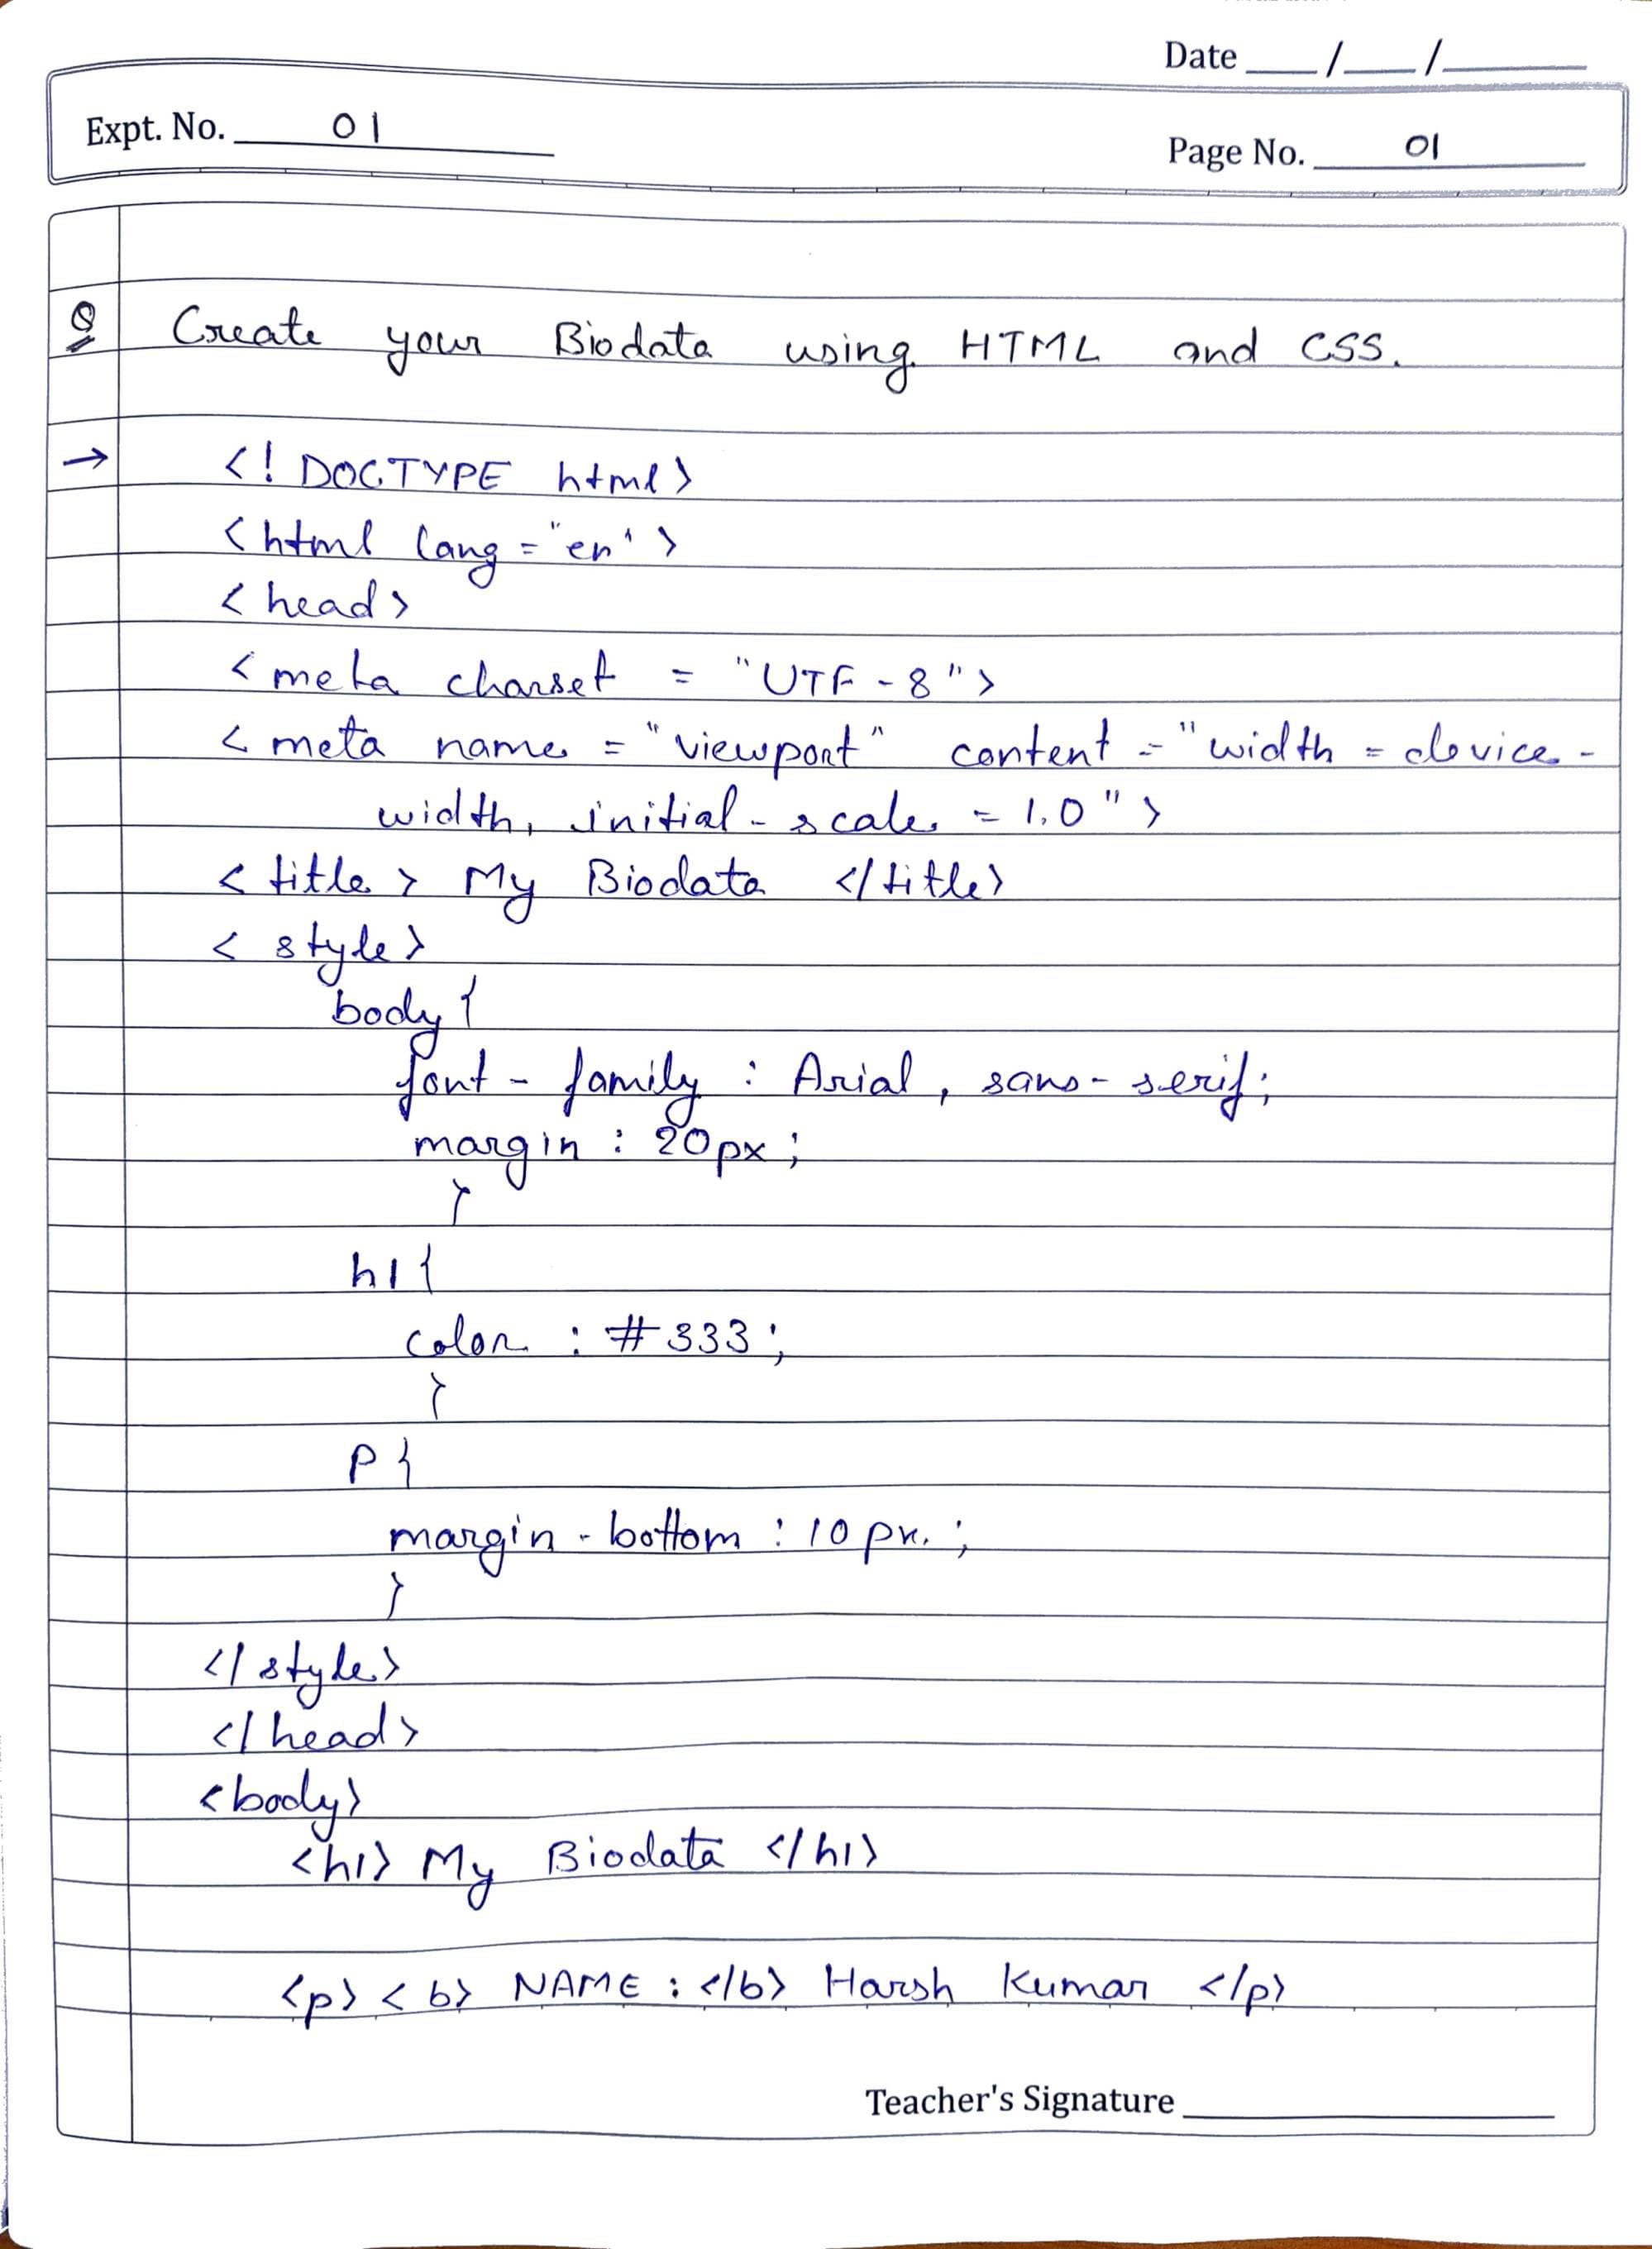 Date ___/___/______
Expt. No. 01
Page No. 01
Q Create your Biodata using HTML and CSS.
→ <! DOCTYPE html>
<html lang = "en">
<head>
<meta charset = "UTF-8">
<meta name = "viewport" content = "width = device-
width, initial-scale = 1.0">
<title> My Biodata </title>
<style>
body {
font-family : Arial, sans-serif;
margin : 20px;
}
h1 {
color : #333;
}
p {
margin-bottom : 10px. ;
}
</style>
</head>
<body>
<h1> My Biodata </h1>
<p> <b> NAME : </b> Harsh Kumar </p>
Teacher's Signature